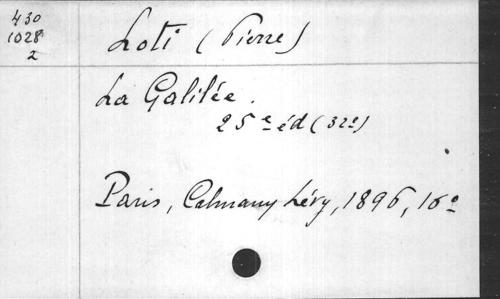 430
1028
2
Loti (Pierre)
La Galilée.
25e éd (32e)
Paris, Calmany Lévy, 1896, 16º